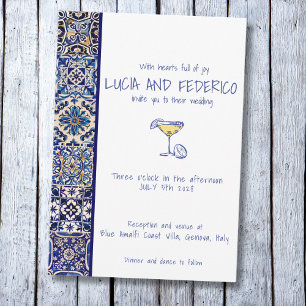 With hearts full of joy
LUCIA AND FEDERICO
invite you to their wedding
Three o'clock in the afternoon
JULY 5TH 2028
Reception and venue at
Blue Amalfi Coast Villa, Genova, Italy
Dinner and dance to follow